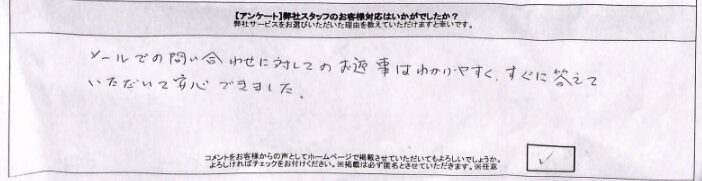 【アンケート】弊社スタッフのお客様対応はいかがでしたか？
弊社サービスをお選びいただいた理由を教えていただけますと幸いです。
メールでの問い合わせに対してのお返事はわかりやすく、すぐに答えて
いただいて安心できました。
コメントをお客様からの声としてホームページで掲載させていただいてもよろしいでしょうか。
よろしければチェックをお付けください。※掲載は必ず匿名とさせていただきます。※任意
✓